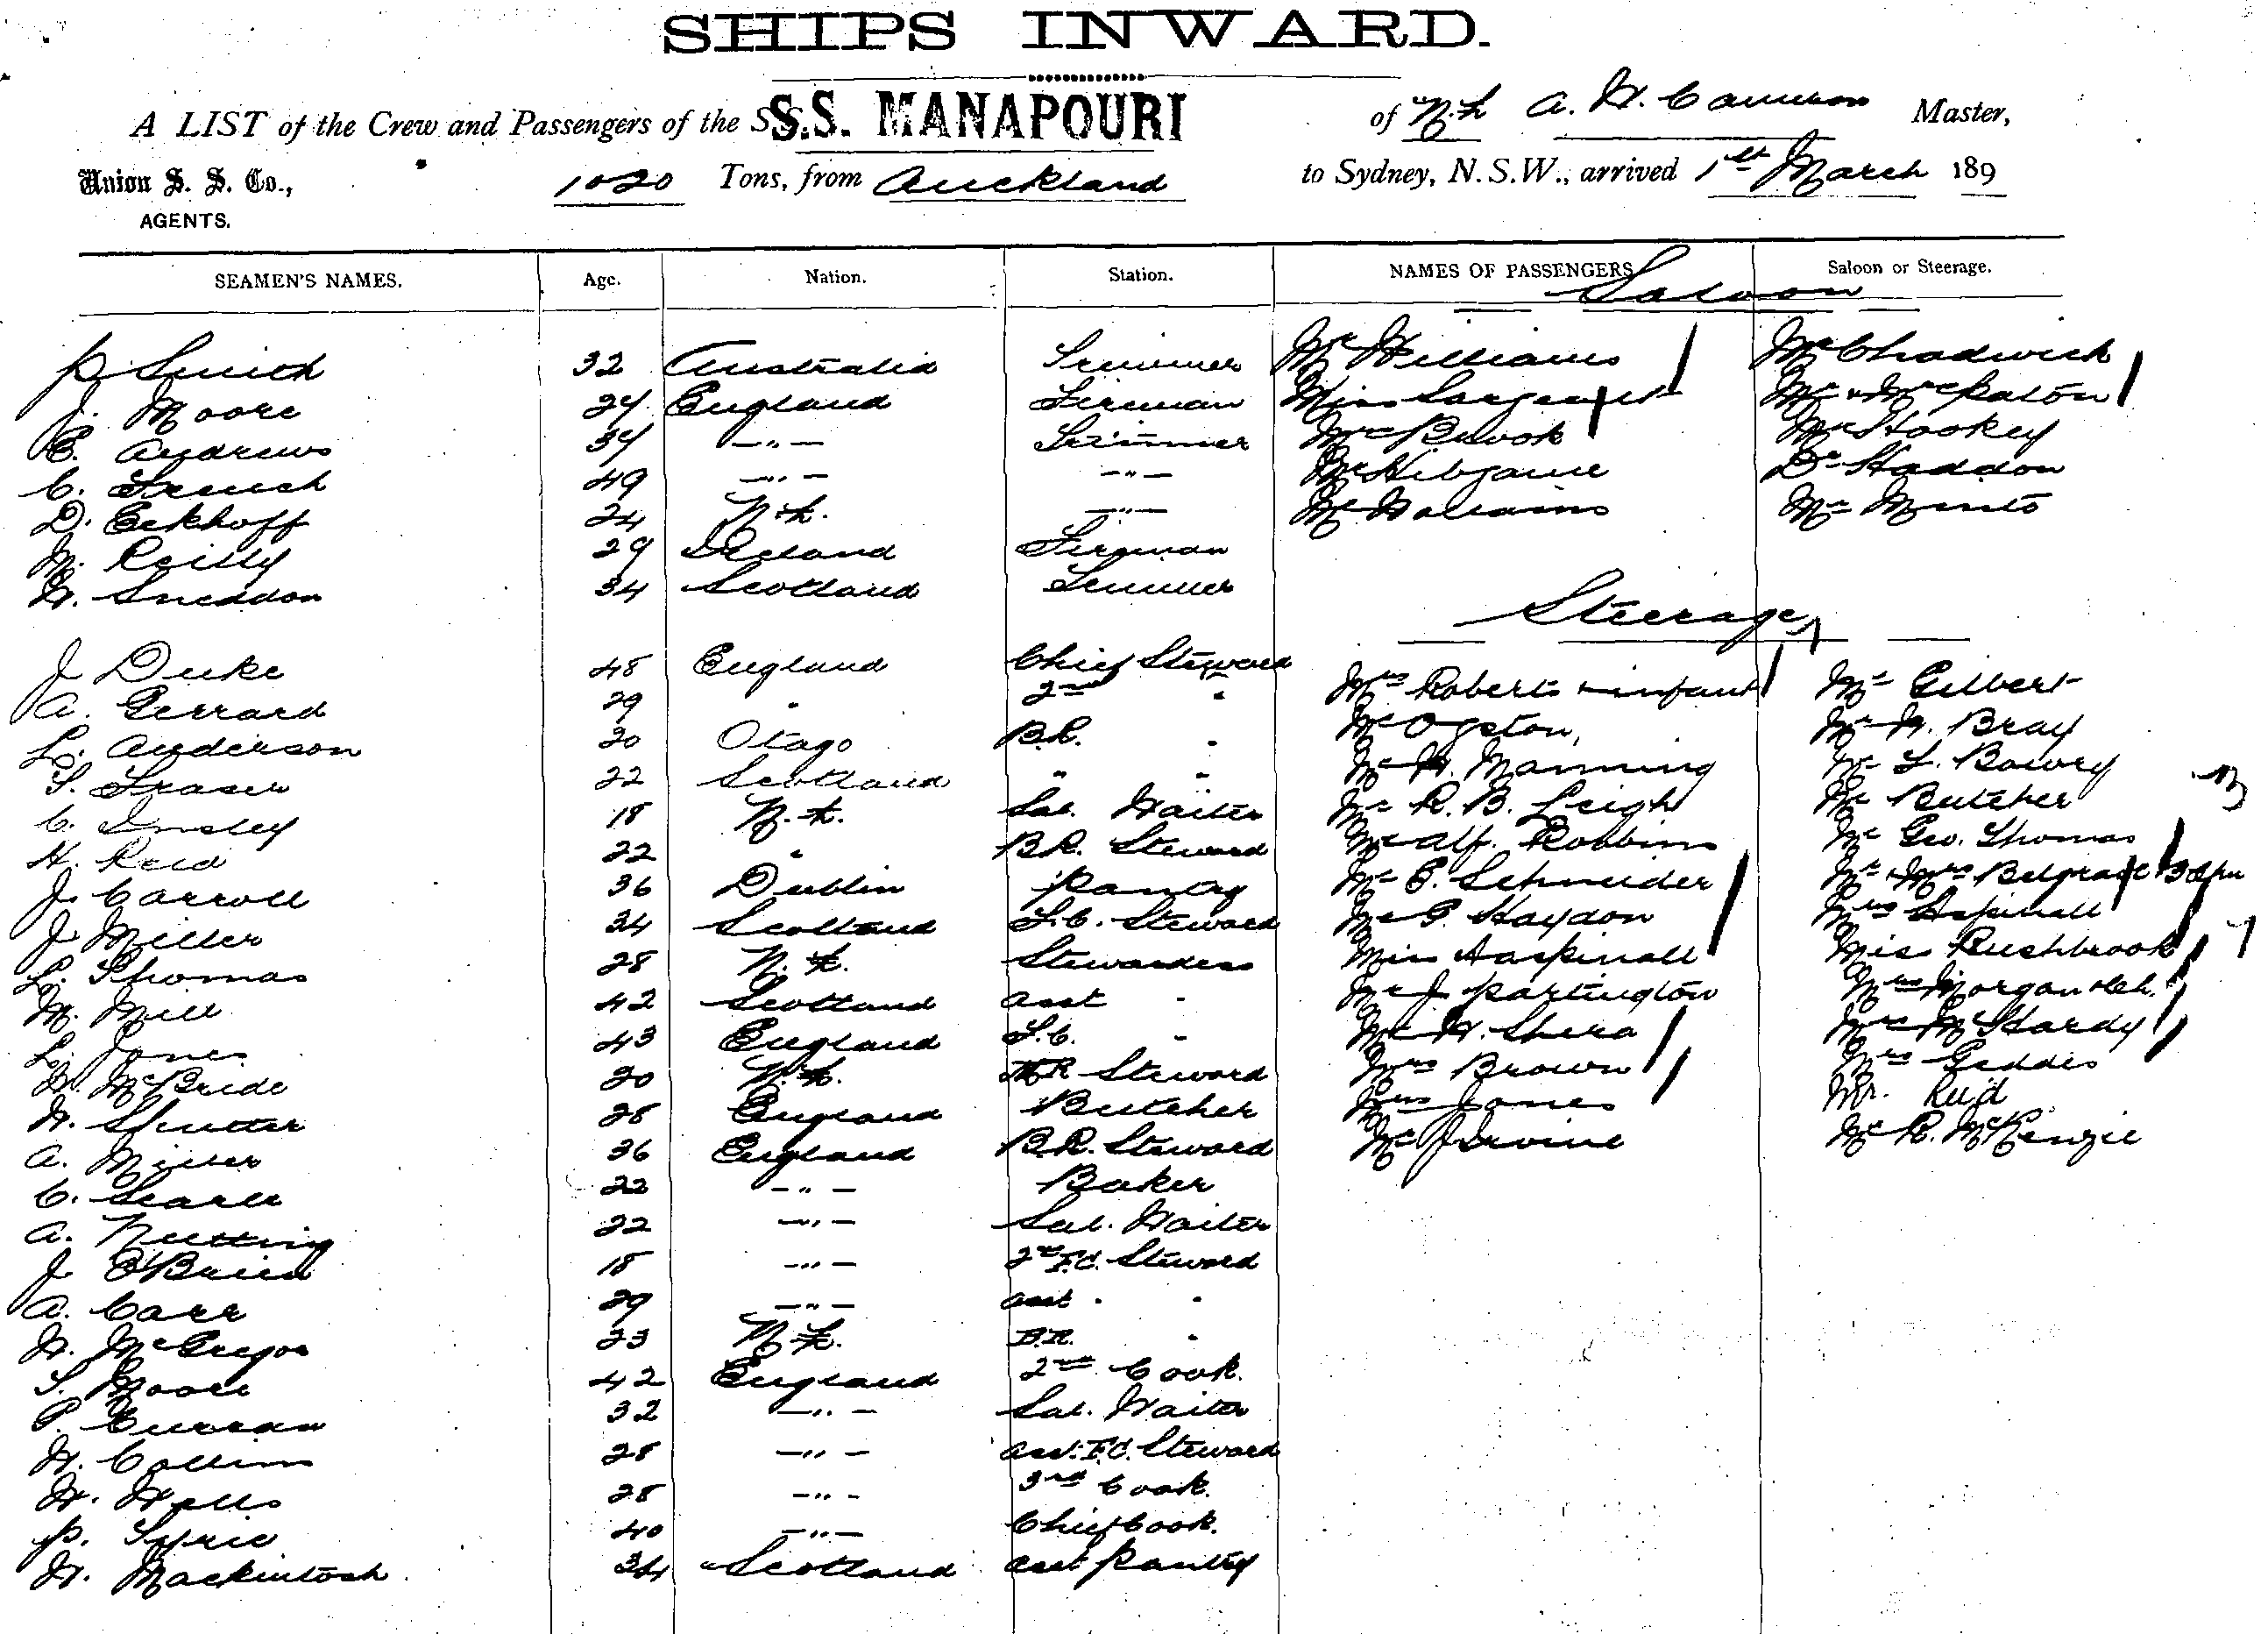 SHIPS INWARD.
A LIST of the Crew and Passengers of the S.S. MANAPOURI of N.Z. A. W. Cameron Master,
Union S. S. Co., 1020 Tons, from Auckland to Sydney, N.S.W., arrived 1st March 189
AGENTS.
SEAMEN'S NAMES. Age. Nation. Station. NAMES OF PASSENGERS Saloon or Steerage.
Saloon
P. Smith 32 Australia Trimmer Mr Williams Mr Chadwick
J. Moore 24 England Fireman Miss Sargeant Mr & Mrs Paton
E. Andrews 34 -"- Trimmer Mrs Brook Mr Hookey
C. French 49 -"- -"- Mr Dr Haddon
D. Eckhoff 24 N.Z. -"- Mr Mr
M. Reilly 29 Ireland Fireman
W. Sneddon 34 Scotland Trimmer
Steerage
J Duke 48 England Chief Steward Mrs Roberts & infant Mr Gilbert
A. Gerrard 29 " 2nd " Mr Ogston, Mr W. Bray
L. Anderson 20 Otago B.R. " Mr W. Manning Mr F. Bowry
S. Fraser 22 Scotland " " Mr R. B. Leigh Mr Butcher
C. Insley 18 N.Z. Sal. Waiter Mr Alf. Robbins Mr Geo. Thomas
H. Reid 22 " B.R. Steward Mr E. Schneider Mr & Mrs Belgrave 3
J. Carroll 36 Dublin Pantry Mr G. Haydon Mrs Aspinall
J. Miller 34 Scotland F.C. Steward Miss Aaspinall Miss Rushbrook
L. Thomas 28 N.Z. Stewardess Mr J Partington Mrs Morgan & ch.
M. Mill 42 Scotland Asst " Mr W. Shera Mrs McHardy
L. Jones 43 England F.C. " Mrs Brown Mrs Geddis
W. McBride 20 N.Z. Steward Mrs Jones Mr. Reid
W. Shutter 28 England Butcher Mr J Irvine Mr R. McKenzie
A. Miller 36 England B.R. Steward
C. Searle 22 -"- Baker
A. Nutting 22 -"- Sal. Waiter
J. O'Brien 18 -"- 2nd F.C. Steward
A. Carr 29 -"- Asst " "
W. McGregor 23 N.Z. B.R. "
S. Moore 42 England 2nd Cook.
P. Curran 32 -"- Sal. Waiter
W. Collins 28 -"- Asst. F.C. Steward
W. Wells 28 -"- 3rd Cook.
P. 40 -"- Chief Cook.
W. Mackintosh 34 Scotland Asst Pantry